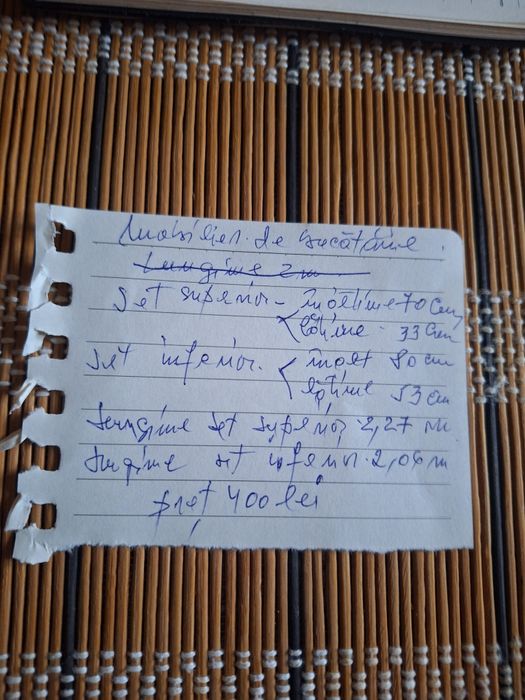 Mobilier de bucătărie
Lungime 2m
Set superior - înălțime 70 cm
lățime - 33 cm
Set inferior. înălț 80 cm
lățime 53 cm
Lungime set superior 2,27 m
Lungime set inferior. 2,06 m
preț 400 lei